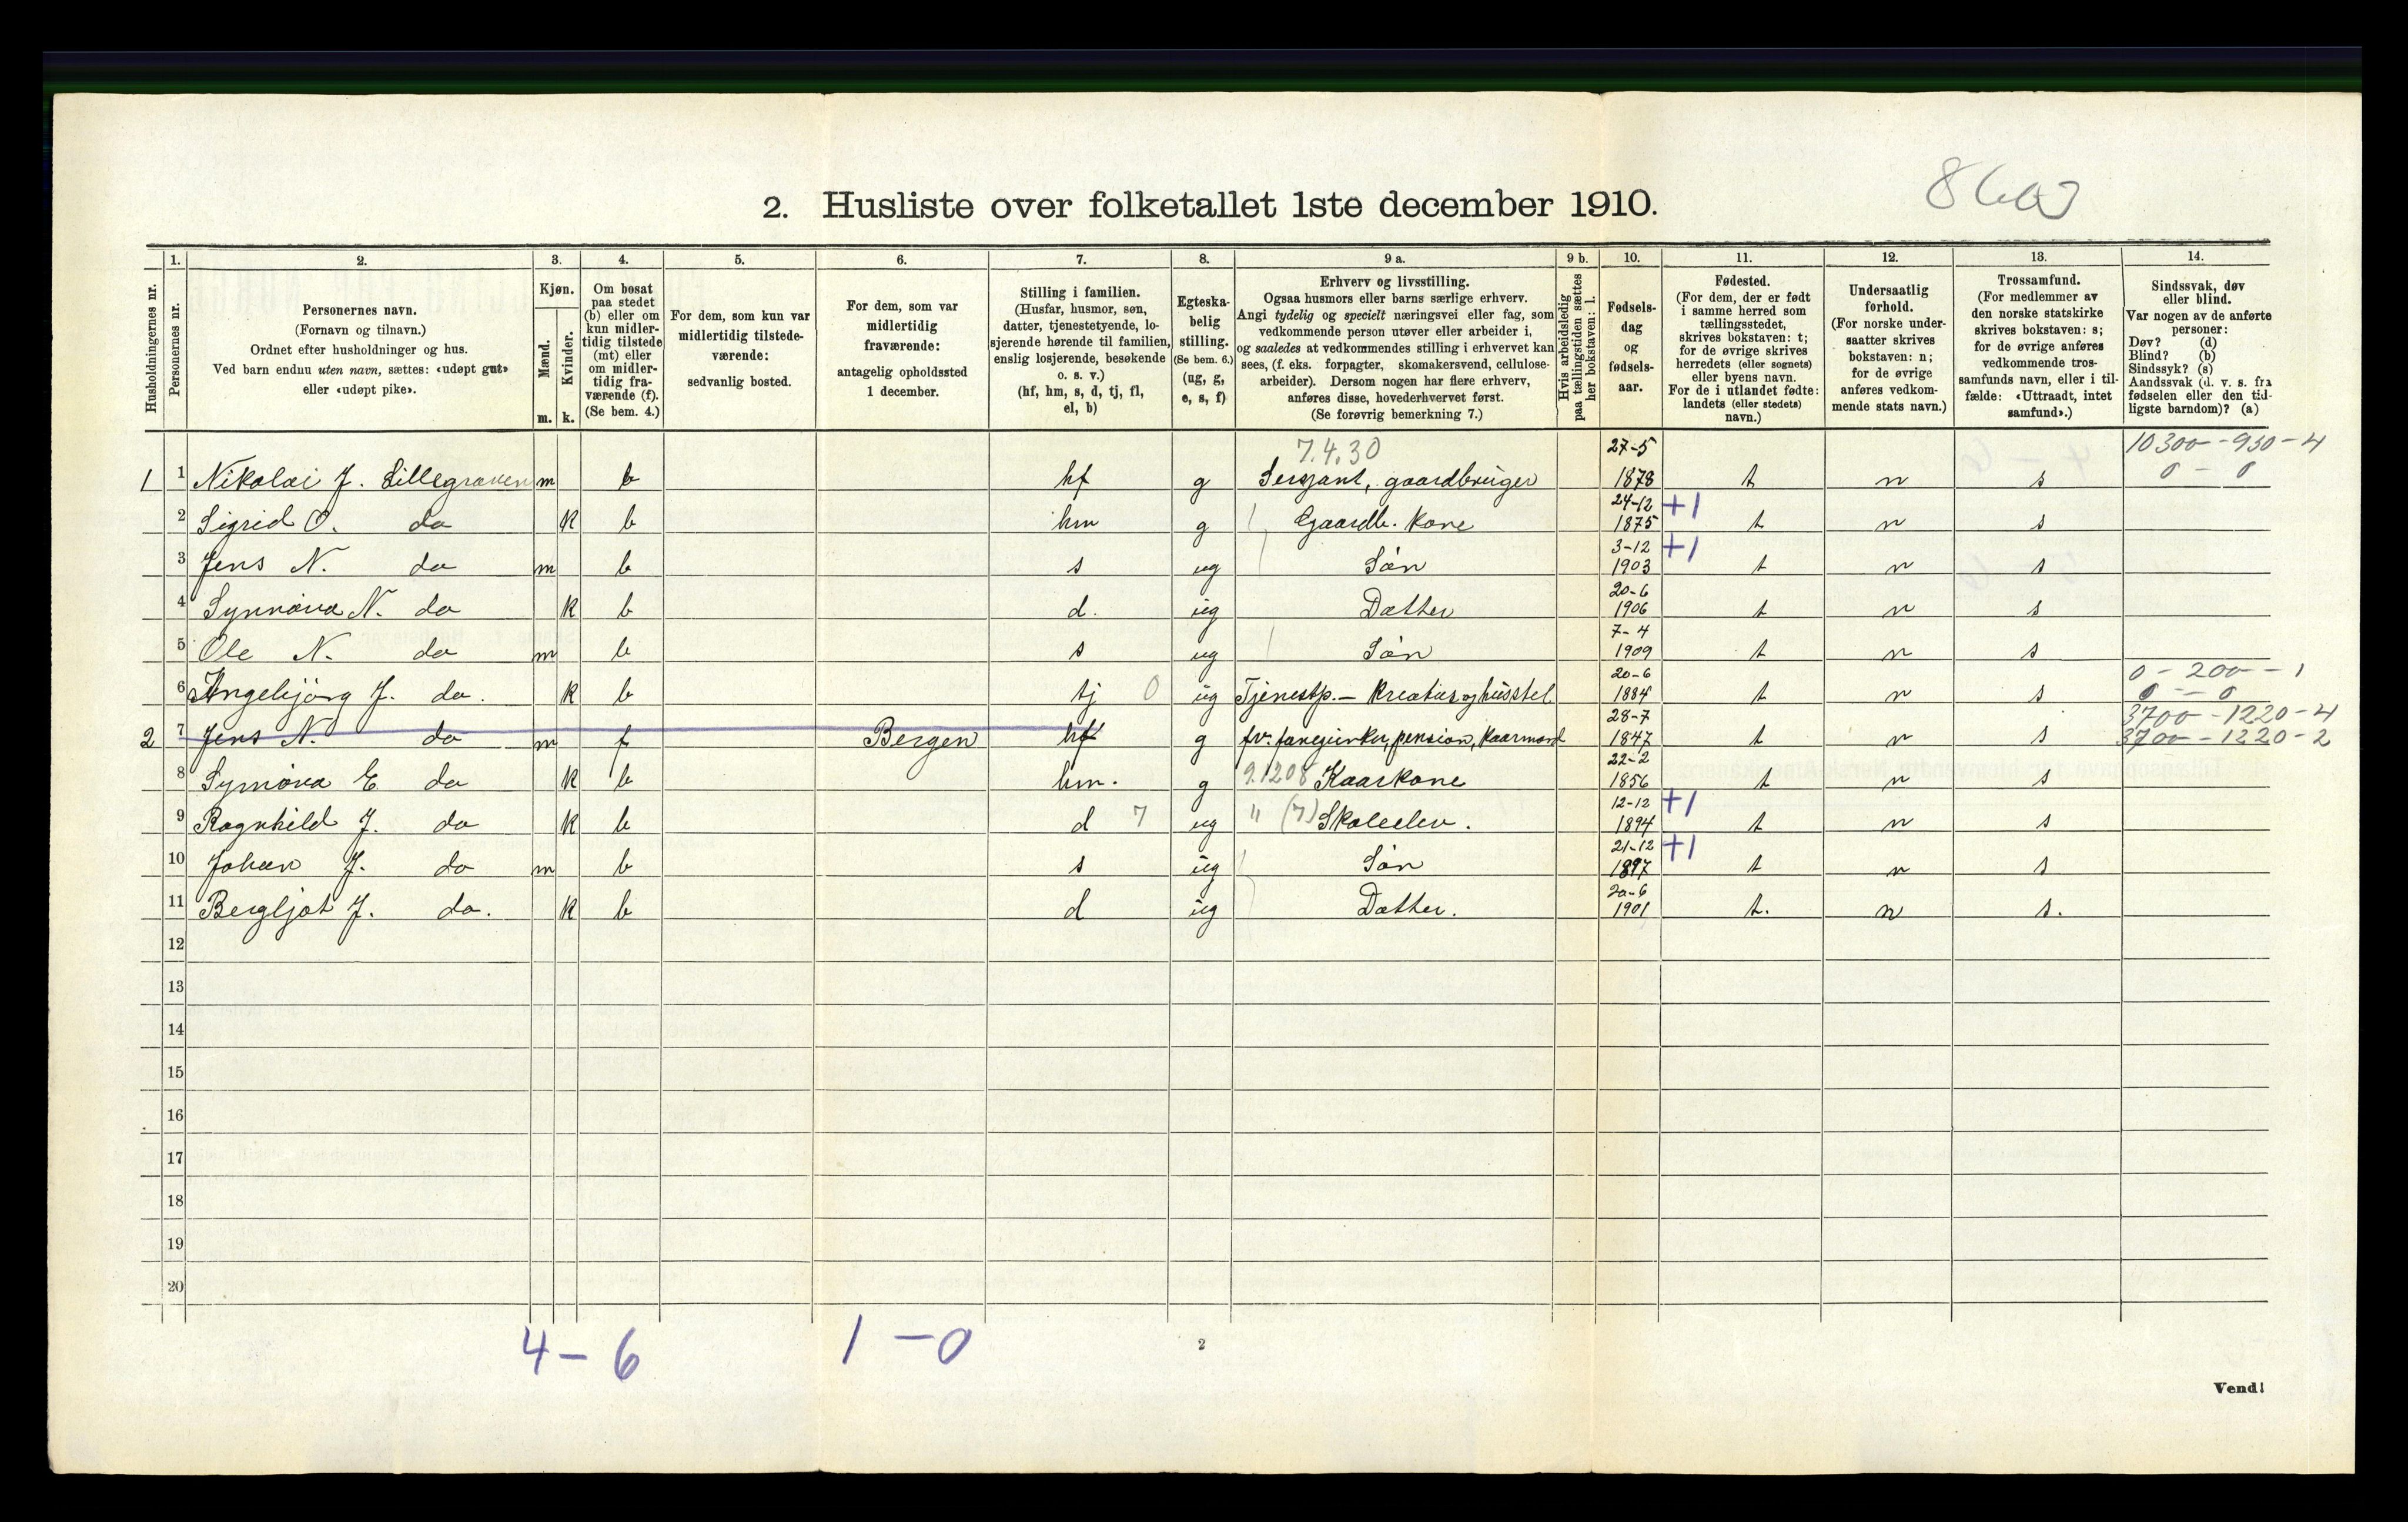 8603
2. Husliste over folketallet 1ste december 1910.
Husholdningernes nr.
1. Personernes nr.
2. Personernes navn. (Fornavn og tilnavn.) Ordnet efter husholdninger og hus. Ved barn endnu uten navn, sættes: «udøpt gut» eller «udøpt pike».
3. Kjøn. Mænd. m. Kvinder. k.
4. Om bosat paa stedet (b) eller om kun midlertidig tilstede (mt) eller om midlertidig fraværende (f). (Se bem. 4.)
5. For dem, som kun var midlertidig tilstedeværende: sedvanlig bosted.
6. For dem, som var midlertidig fraværende: antagelig opholdssted 1 december.
7. Stilling i familien. (Husfar, husmor, søn, datter, tjenestetyende, losjerende hørende til familien, enslig losjerende, besøkende o. s. v.) (hf, hm, s, d, tj, fl, el, b)
8. Egteskabelig stilling. (Se bem. 6.) (ug, g, e, s, f)
9 a. Erhverv og livsstilling. Ogsaa husmors eller barns særlige erhverv. Angi tydelig og specielt næringsvei eller fag, som vedkommende person utøver eller arbeider i, og saaledes at vedkommendes stilling i erhvervet kan sees, (f. eks. forpagter, skomakersvend, cellulosearbeider). Dersom nogen har flere erhverv, anføres disse, hovederhvervet først. (Se forøvrig bemerkning 7.)
9 b. Hvis arbeidsledig paa tællingstiden sættes her bokstaven: l.
10. Fødselsdag og fødselsaar.
11. Fødested. (For dem, der er født i samme herred som tællingsstedet, skrives bokstaven: t; for de øvrige skrives herredets (eller sognets) eller byens navn. For de i utlandet fødte: landets (eller stedets) navn.)
12. Undersaatlig forhold. (For norske undersaatter skrives bokstaven: n; for de øvrige anføres vedkommende stats navn.)
13. Trossamfund. (For medlemmer av den norske statskirke skrives bokstaven: s; for de øvrige anføres vedkommende trossamfunds navn, eller i tilfælde: «Uttraadt, intet samfund».)
14. Sindssvak, døv eller blind. Var nogen av de anførte personer: Døv? (d) Blind? (b) Sindssyk? (s) Aandssvak (d. v. s. fra fødselen eller den tidligste barndom)? (a)
7.4.30 27-5 10300 - 930 - 4
1 1 Nikolai J. Lillegraven m b hf g Sersjant, gaardbruger 1878 t n s 0 - 0
2 Sigrid O. do k b hm g Gaardb. kone 24-12 1875 +1 t n s
3 Jens N. do m b s ug Søn 3-12 1903 +1 t n s
4 Synnøva N. do k b d. ug Datter 20-6 1906 t n s
5 Ole N. do m b s ug Søn 7-4 1909 t n s
0 - 200 - 1
6 Angebjörg J. do. k b tj 0 ug Tjenestp. - kreatur og husstel 20-6 1884 t n s 0 - 0
3700 - 1220 - 4
2 7 Jens N. do m f Bergen hf g fv. fanejunker, pension, kaarmand 28-7 1847 t n s 3700 - 1220 - 2
8 Synnøva E. do k b hm. g 9.1208 Kaarkone 22-2 1856 t n s
9 Ragnhild J. do k b d 7 ug " (7) Skoleelev. 12-12 1894 +1 t n s
10 Johan J. do m b s ug Søn 21-12 1897 +1 t n s
11 Bergljot J. do. k b d ug Datter. 20-6 1901 t. n s.
12
13
14
15
16
17
18
19
20
4 - 6 1 - 0
2
Vend!